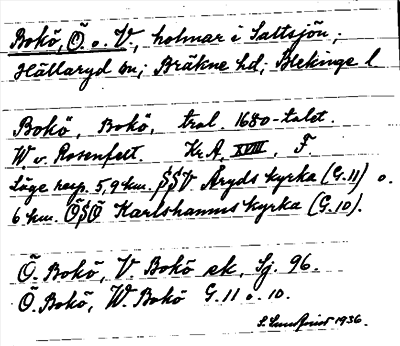 Bokö, Ö. o. V., holmar i Saltsjön;
Hällaryd sn; Bräkne hd; Blekinge l
Bokö, Bokö, trol. 1680-talet.
W v. Rosenfelt. Kr.A, XVIII, F.
Läge resp. 5,9 km. SSV Åryds kyrka (G.11) o.
6 km. ÖSÖ Karlshamns kyrka (G.10).
Ö. Bokö, V. Bokö ek, Sj. 96.
Ö. Bokö, W. Bokö G.11 o. 10.
S. Lundqvist 1936.